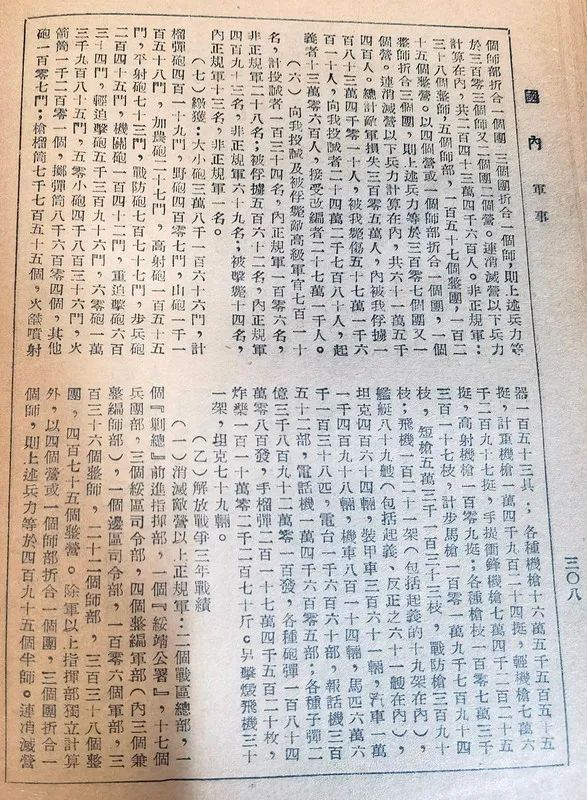 國內 軍事
三〇八
個師部折合一個團,三個團折合一個師,則上述兵力等
於三百零三個師又二個團二個營。連消滅營以下兵力
計算在內,共二百四十三萬四千六百人。非正規軍:
三十八個整師,五個師部,一百五十七個整團,一百二
十五個整營。以四個營或一個師部折合一個團,一個
整師折合三個團,則上述兵力等於三百零七個團又一
個營。連消滅營以下兵力計算在內,共六十一萬五千
四百人。總計敵軍損失三百零五萬人,內被我俘擄一
百八十三萬四千零一十人,被我斃傷五十七萬一千六
百一十人,向我投誠者二十四萬二千七百八十人,起
義者十三萬零六百人,接受改編者二十七萬一千人。
(六)向我投誠及被俘斃敵高級軍官七百一十
名,計投誠者一百三十四名,內正規軍一百零六名,
非正規軍二十八名;被俘擄五百六十二名,內正規軍
四百九十三名,非正規軍六十九名;被擊斃十四名,
內正規軍十三名,非正規軍一名。
(七)繳獲:大小砲三萬八千一百六十六門,計
榴彈砲四百一十九門,野砲四百零七門,山砲一千一
百五十八門,加農砲二十七門,高射砲一百五十五
門,平射砲七十三門,戰防砲七百七十七門,步兵砲
二百四十五門,機關砲一百四十二門,重迫擊砲六百
三十四門,輕迫擊砲五千三百九十六門,六零砲一萬
三千九百八十五門,五零小砲四千八百三十六門,火
箭筒一千二百零一個,擲彈筒八千六百零四個,其他
砲一百零七門;槍榴筒七千七百五十五個,火燄噴射
器一百五十三具;各種機槍十六萬五千五百五十五
挺,計重機槍一萬四千九百二十四挺,輕機槍七萬六
千二百九十七挺,手提衝鋒機槍七萬四千二百二十五
挺,高射機槍一百零九挺;各種槍枝一百零七萬三千
三百一十七枝,計步馬槍一百零一萬九千七百九十四
枝,短槍五萬三千一百三十三枝,戰防槍三百九十
枝;飛機一百二十一架(包括起義的十九架在內),
艦艇八十九艘(包括起義、反正之六十一艘在內),
坦克四百六十四輛,裝甲車三百六十一輛,汽車一萬
一千四百九十八輛,機車八百一十四輛,馬匹六萬六
千一百三十八匹,電台一千六百六十部,報話機三百
五十二部,電話機一萬二千六百零五部;各種子彈二
億三千八百九十二萬零一百發,各種砲彈一百八十四
萬零八百發,手榴彈二百一十七萬四千五百二十枚,
炸藥一百一十萬零二千二百七十斤。另擊燬飛機三十
一架,坦克七十九輛。
(乙)解放戰爭三年戰績
(一)消滅敵營以上正規軍:二個戰區總部,一
個『剿總』前進指揮部,一個『綏靖公署』,十七個
兵團部,三個綏區司令部,四個整編軍部(內三個兼
整編師部),一個邊區司令部,一百零六個軍部,三
百三十六個整師,二十二個師部,三百三十八個整
團,四百七十五個整營。除軍以上指揮部獨立計算
外,以四個營或一個師部折合一個團,三個團折合一
個師,則上述兵力等於四百九十五個半師。連消滅營